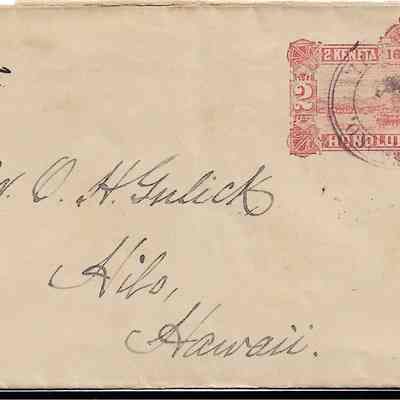 2 KENETA 16
2
HONOLU
O. H. Gulick
Hilo,
Hawaii.